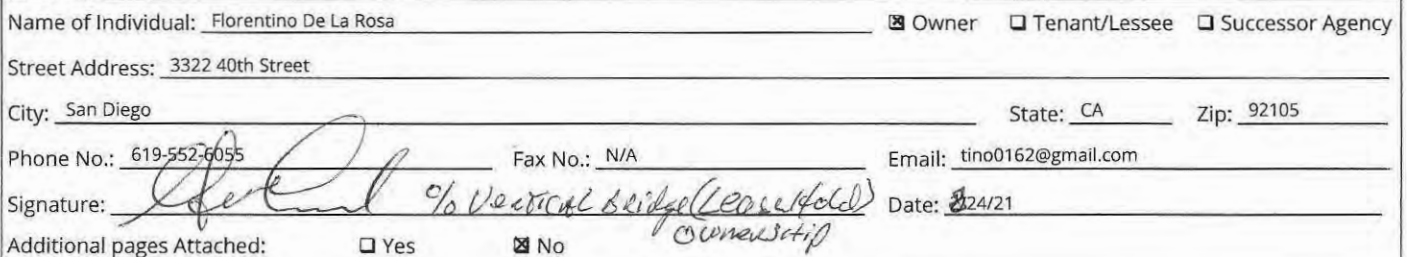 Name of Individual: Florentino De La Rosa ☒ Owner ☐ Tenant/Lessee ☐ Successor Agency
Street Address: 3322 40th Street
City: San Diego State: CA Zip: 92105
Phone No.: 619-552-6055 Fax No.: N/A Email: tino0162@gmail.com
Signature: c/o Vertical Bridge (Leasehold) Date: 24/21
Ownership
Additional pages Attached: ☐ Yes ☒ No